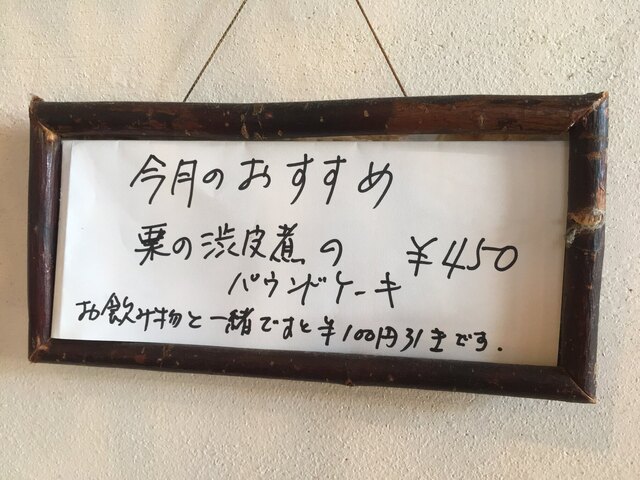 今月のおすすめ
栗の渋皮煮の ¥450
パウンドケーキ
お飲み物と一緒ですと¥100円引きです.